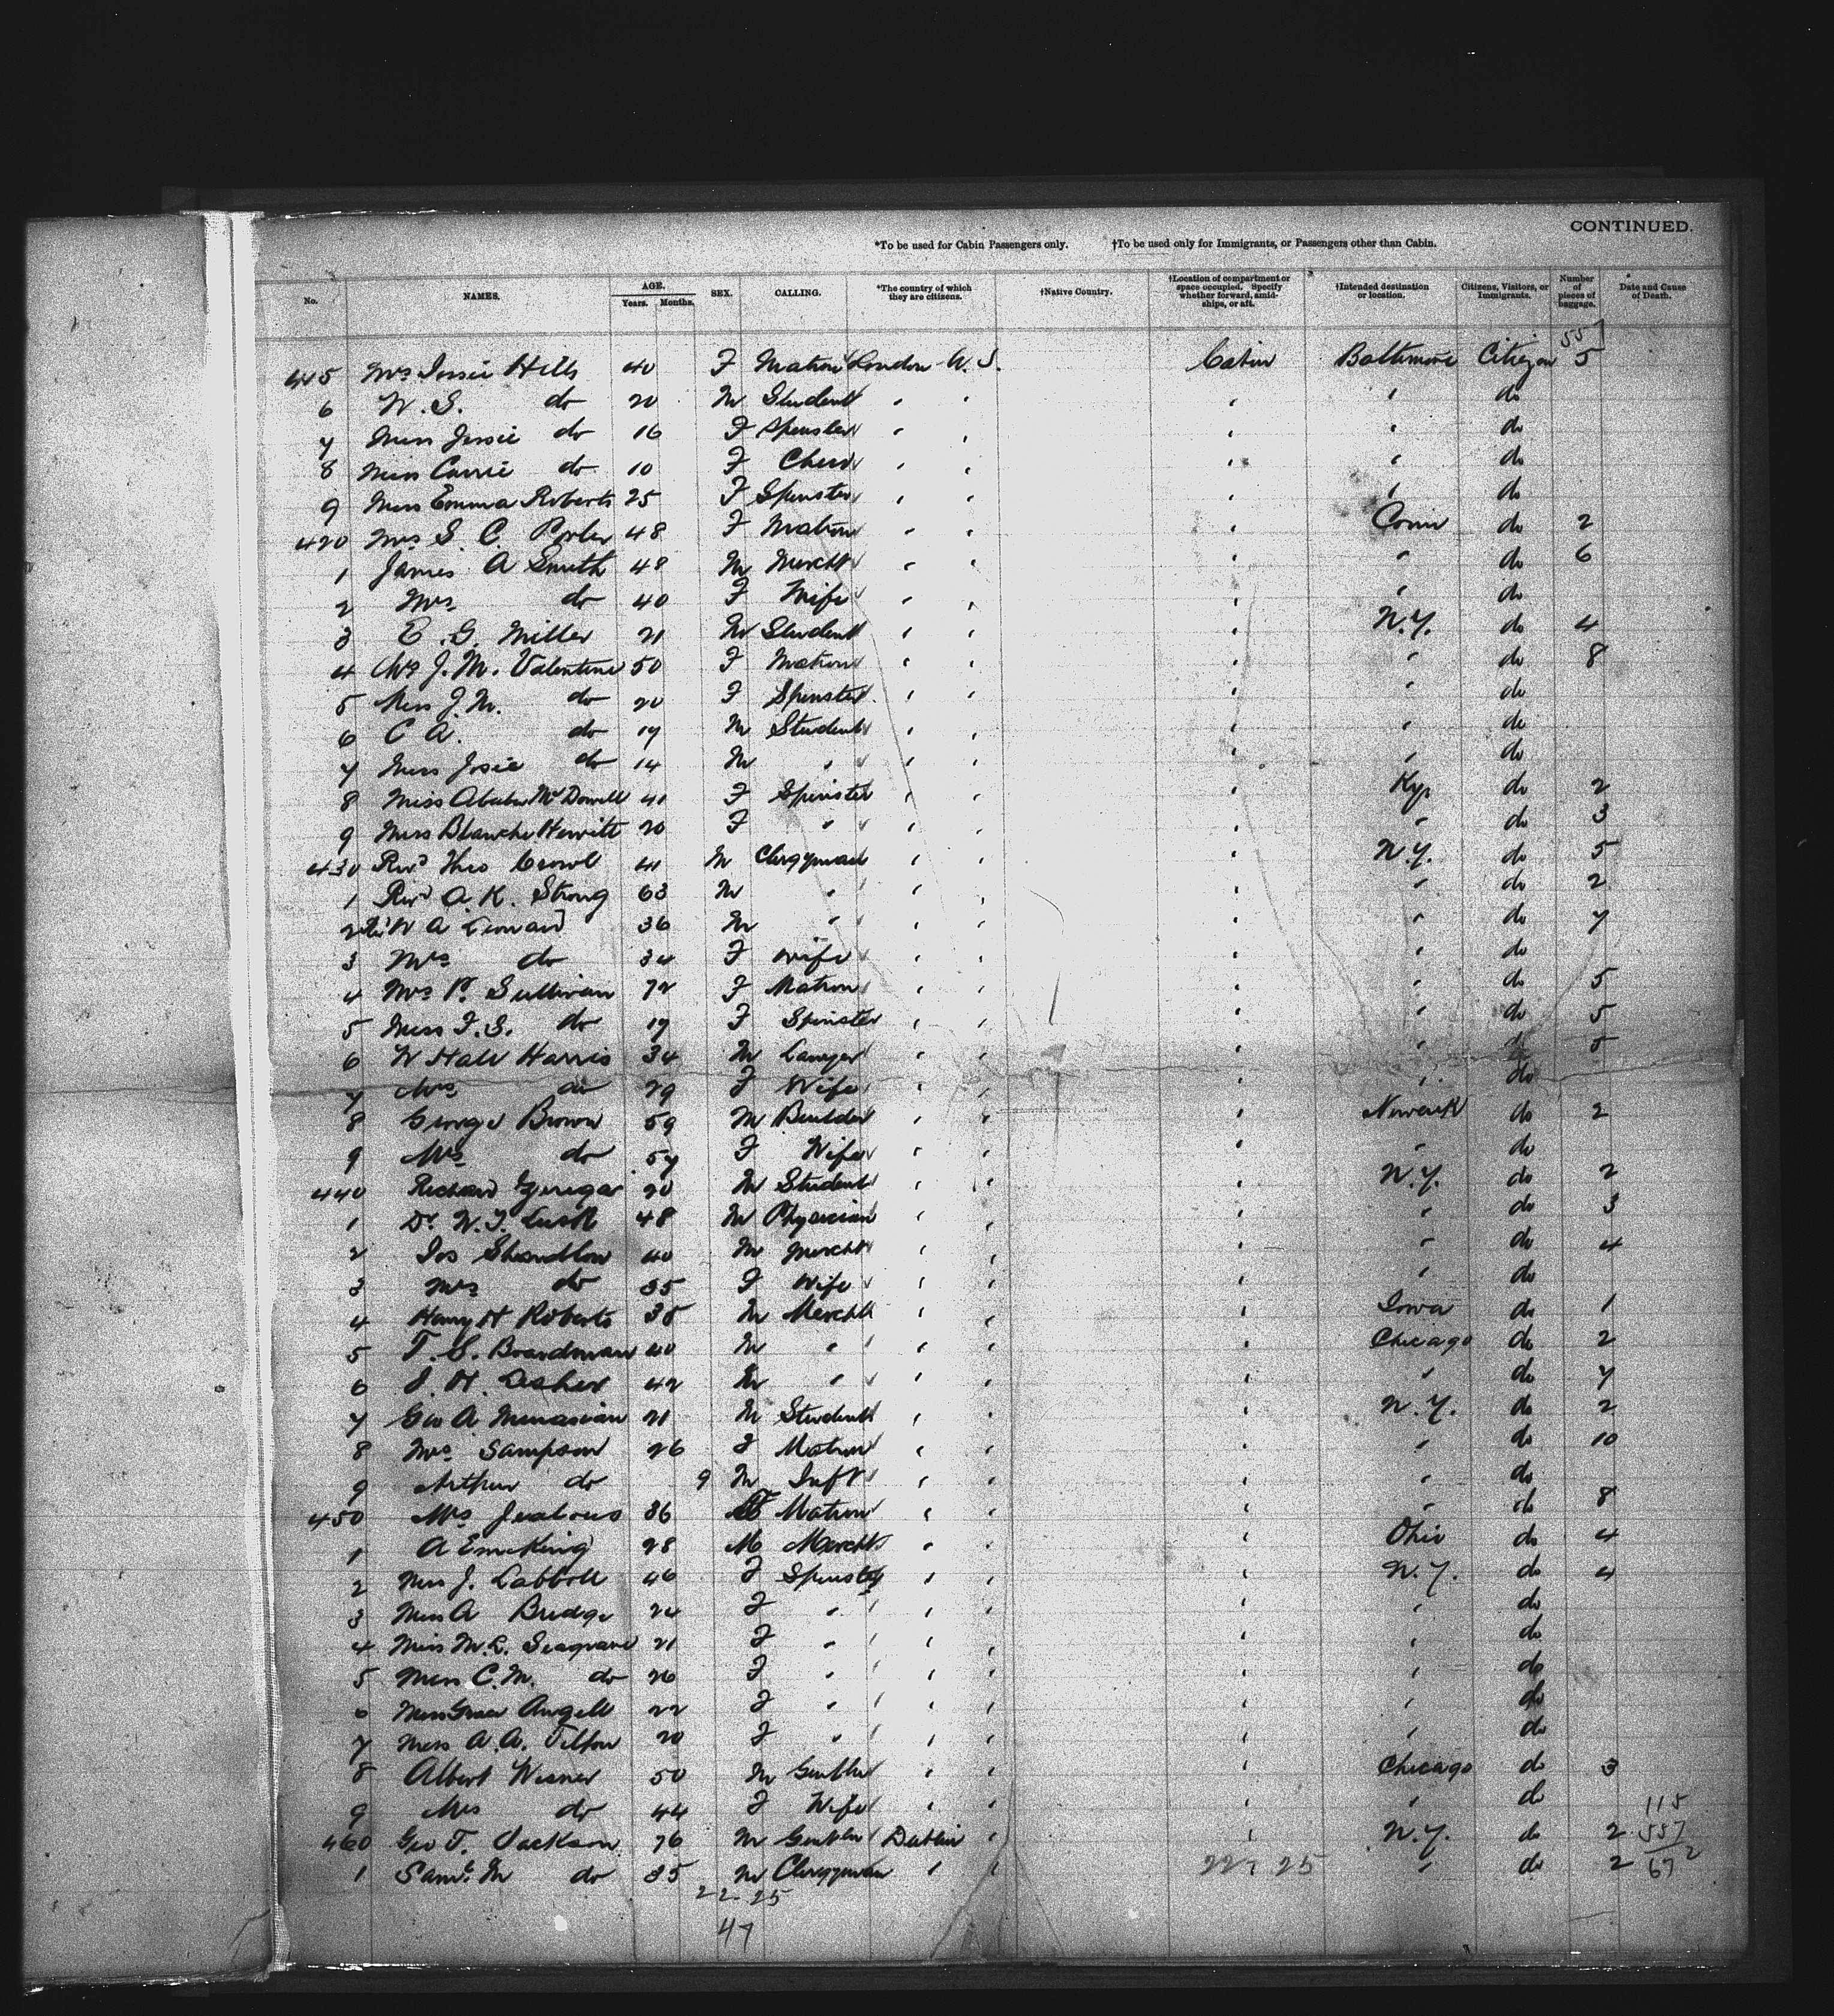 CONTINUED.
*To be used for Cabin Passengers only. †To be used only for Immigrants, or Passengers other than Cabin.
No. NAMES. AGE. Years. Months. SEX. CALLING. *The country of which they are citizens. †Native Country. †Location of compartment or space occupied. Specify whether forward, amidships, or aft. †Intended destination or location. Citizens, Visitors, or Immigrants. Number of pieces of baggage. Date and Cause of Death.
557
415 Mrs Jessie Hills 40 F Matron London U.S. Cabin Baltimore Citizen 5
6 W. S. do 20 M Student " " " " do
7 Miss Jessie do 16 F Spinster " " " " do
8 Miss Carrie do 10 F Child " " " " do
9 Miss Emma Roberts 25 F Spinster " " " " do
420 Mrs S. C. Porter 48 F Matron " " " Conn do 2
1 James A Smith 48 M Mercht " " " " do 6
2 Mrs do 40 F Wife " " " " do
3 E. G. Miller 21 M Student " " " N.Y. do 4
4 Mrs J. M. Valentine 50 F Matron " " " " do 8
5 Miss J. M. do 20 F Spinster " " " " do
6 C A. do 17 M Student " " " " do
7 Miss Josie do 14 M " " " " " do
8 Miss McDowell 41 F Spinster " " " Ky. do 2
9 Miss Blanche Hewitt 20 F " " " " " do 3
430 Revd Theo Crowl 41 M Clergyman " " " N.Y. do 5
1 Revd A. K. Strong 63 M " " " " " do 2
2 W A Leonard 36 M " " " " " do 7
3 Mrs do 34 F Wife " " " " do
4 Mrs P. Sullivan 72 F Matron " " " " do 5
5 Miss F. S. do 19 F Spinster " " " " do 5
6 W Hall Harris 34 M Lawyer " " " " do 5
7 Mrs do 29 F Wife " " " " do
8 George Brown 59 M Builder " " " Newark do 2
9 Mrs do 57 F Wife " " " " do
440 Richard 20 M Student " " " N.Y. do 2
1 Dr W. T. Lusk 48 M Physician " " " " do 3
2 Jos 40 M Mercht " " " " do 4
3 Mrs do 35 F Wife " " " " do
4 Harry H Roberts 35 M Mercht " " " Iowa do 1
5 T. S. Boardman 40 M " " " " Chicago do 2
6 J. H. Lesher 42 M " " " " " do 7
7 Geo A. Minasian 21 M Student " " " N.Y. do 2
8 Mrs Sampson 26 F Matron " " " " do 10
9 Arthur do 9 M Inft " " " " do
450 Mrs Jealous 36 F Matron " " " " do 8
1 A EmcKing 28 M Mercht " " " Ohio do 4
2 Miss J. Labbott 46 F Spinster " " " N.Y. do 4
3 Miss A Bridge 24 F " " " " " do
4 Miss M. L. Seagrave 21 F " " " " " do
5 Miss C. M. do 26 F " " " " " do
6 Miss Grace Angell 22 F " " " " " do
7 Miss A. A. Tilton 20 F " " " " " do
8 Albert Wisner 50 M Gentln " " " Chicago do 3
9 Mrs do 44 F Wife " " " " do
460 Geo T. Jackson 76 M Gentln Dublin " " N.Y. do 2
1 Saml. M do 35 M Clergyman " " " do 2
115
557
672
22 25
22 - 25
47